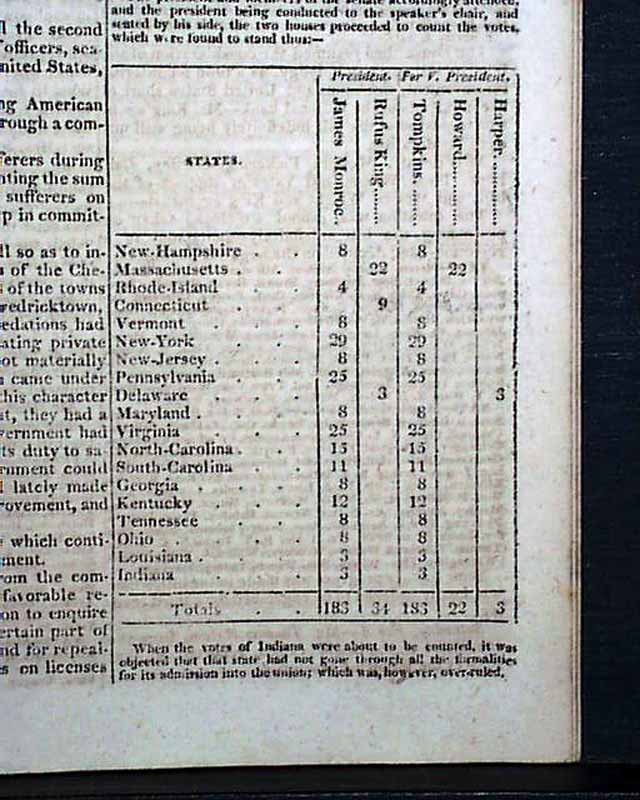 ll the second
officers, sea-
nited States,
ng American
rough a com-
ferers during
nting the sum
sufferers on
p in commit-
ll so as to in-
s of the Che-
of the towns
redricktown,
edations had
ating private
ot materially
n came under
his character
st, they had a
vernment had
ts duty to sa-
rnment could
l lately made
rovement, and
which conti-
ment.
rom the com-
favorable re-
on to enquire
ertain part of
nd for repeal-
s on licenses
and the president being conducted to the speaker's chair, and
seated by his side, the two houses proceeded to count the votes,
which were found to stand thus:—
President. For V. President.
STATES. James Monroe.. Rufus King....... Tompkins. ....... Howard............ Harper............
New-Hampshire . . 8 8
Massachusetts . . 22 22
Rhode-Island . . 4 4
Connecticut . . 9
Vermont . . . 8 8
New-York . . . 29 29
New-Jersey . . . 8 8
Pennsylvania . . 25 25
Delaware . . . 3 3
Maryland . . . 8 8
Virginia . . . 25 25
North-Carolina . . 15 15
South-Carolina . . 11 11
Georgia . . . 8 8
Kentucky . . . 12 12
Tennessee . . 8 8
Ohio . . . 8 8
Louisiana . . . 3 3
Indiana . . . 3 3
Totals . . 183 34 183 22 3
When the votes of Indiana were about to be counted, it was
objected that that state had not gone through all the formalities
for its admission into the union; which was, however, over-ruled.